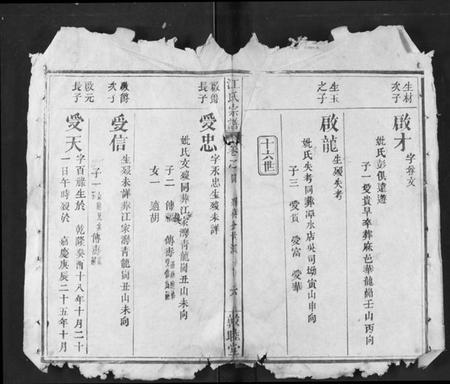 生材
次子
啟才 字參文
妣氏彭俱遠遊
子一 愛貴早卒葬麻邑華龍崗壬山丙向
生玉
之子
啟龍 生歿失考
妣氏失考同葬潭水店吳司坳寅山申向
子三 愛貴 愛富 愛華
十六世
江氏宗譜 卷 六
啟爵
長子
愛忠 字永忠生歿未詳
妣氏女歿同葬江家灣青龍崗丑山未向
子二 傳 傳壽
女一 適胡
啟爵
次子
愛信 生歿未詳葬江家灣青龍崗丑山未向
子一 傳壽
啟元
長子
愛天 字百祿生於 乾隆癸酉十八年十月二十
一日午時歿於 嘉慶庚辰二十五年十月